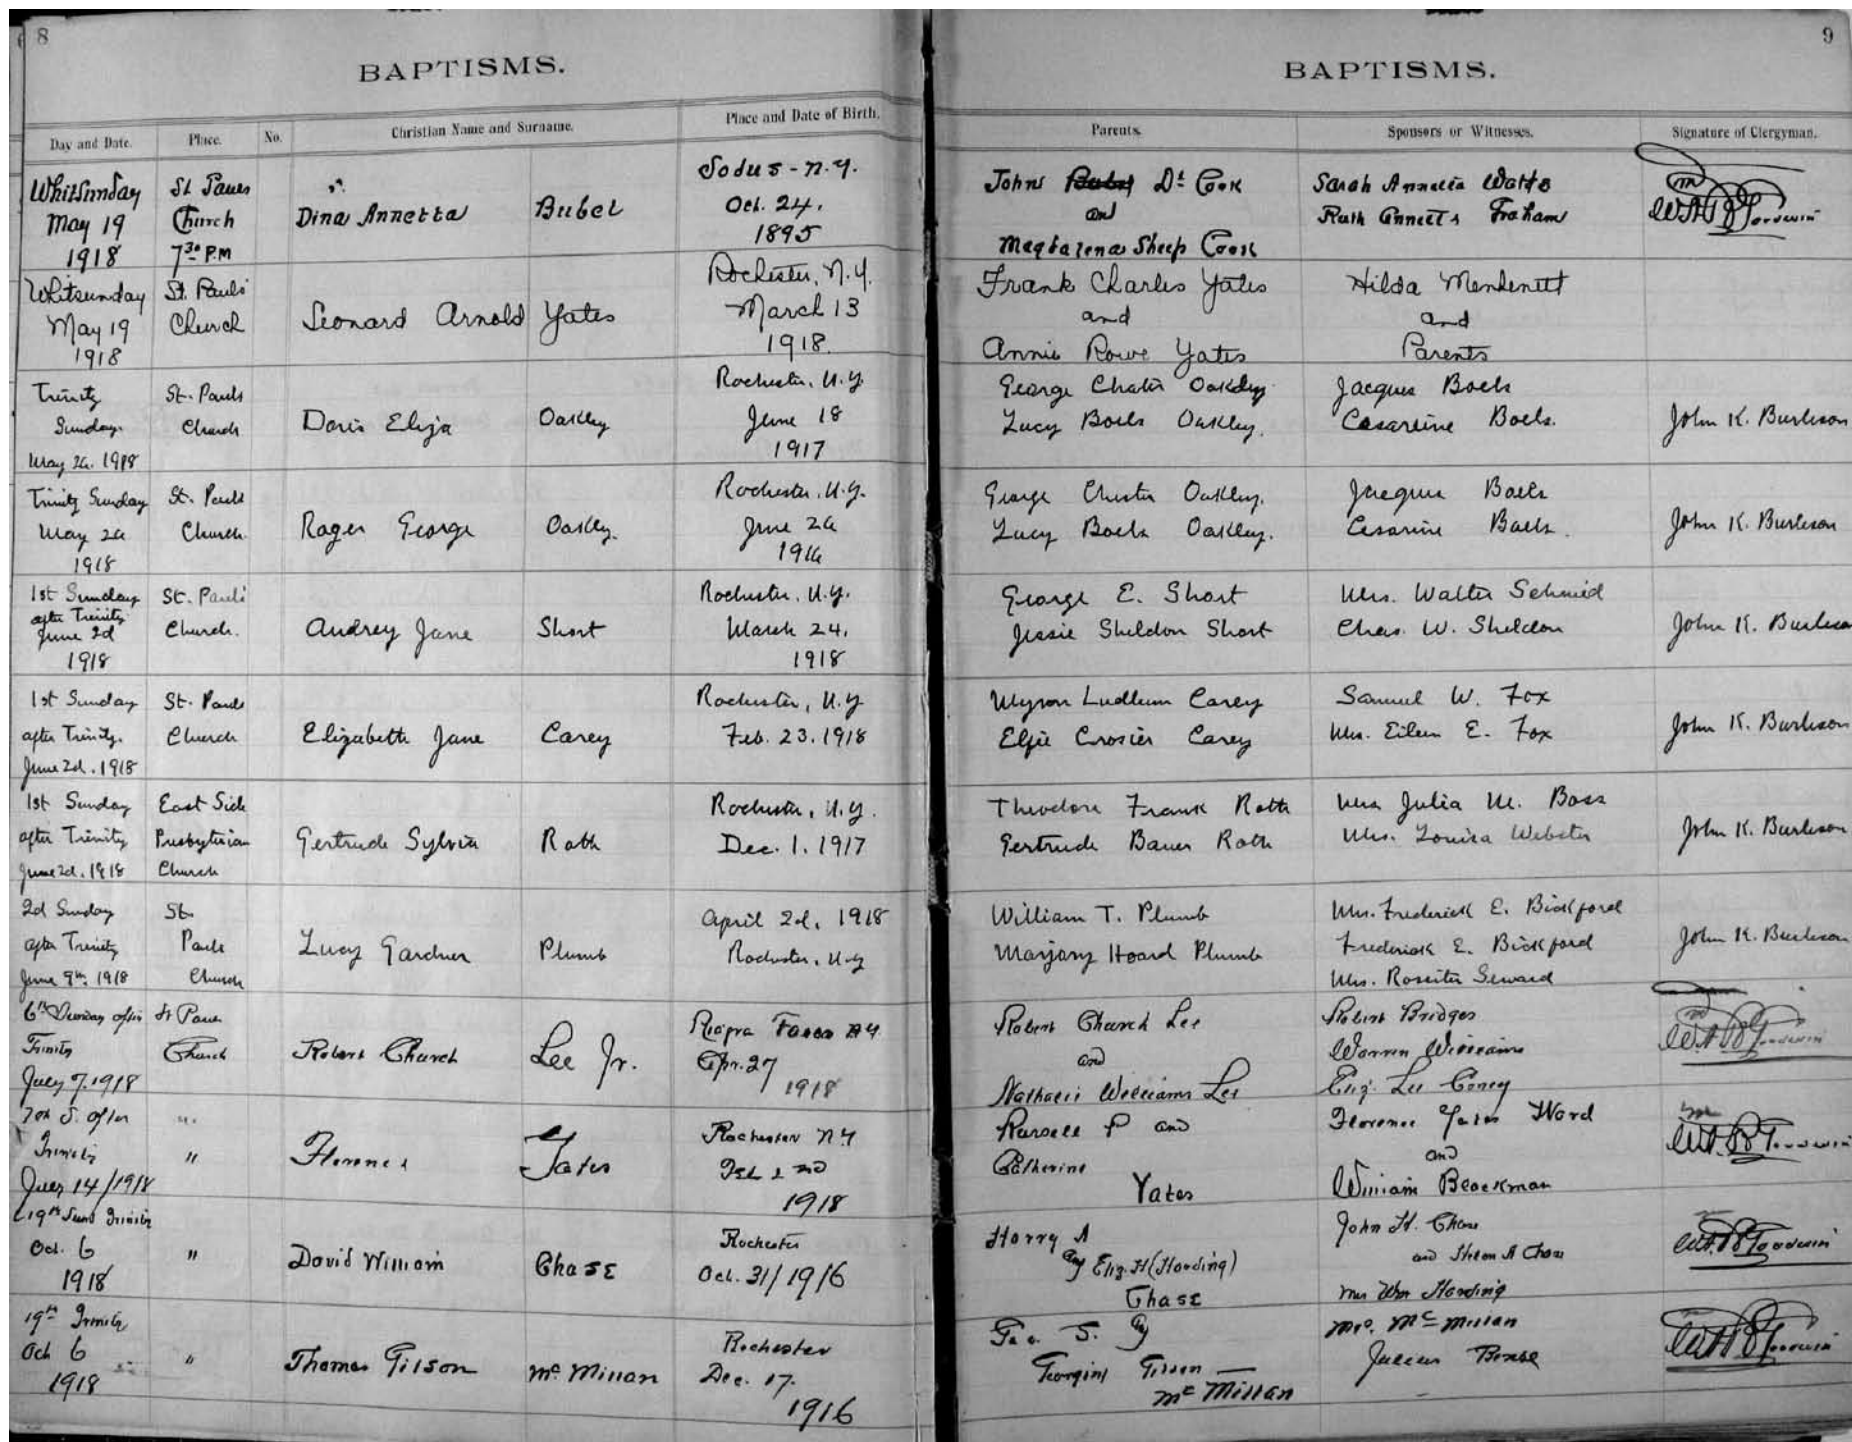 8
BAPTISMS.
Day and Date. Place. No. Christian Name and Surname. Place and Date of Birth.
Whitsunday May 19 1918
St Pauls Church 7 30 P.M
Dina Annetta Bubel
Sodus - N.Y. Oct. 24. 1895
Whitsunday May 19 1918
St. Pauls' Church
Leonard Arnold Yates
Rochester, N.Y. March 13 1918.
Trinity Sunday. May 26. 1918
St. Pauls Church
Doris Eliza Oakley
Rochester, N.Y. June 18 1917
Trinity Sunday May 26 1918
St. Pauls Church.
Roger George Oakley.
Rochester, N.Y. June 26 1916
1st Sunday after Trinity June 2d 1918
St. Paul's Church.
Audrey Jane Short
Rochester, N.Y. March 24, 1918
1st Sunday after Trinity. June 2d. 1918
St. Pauls Church
Elizabeth Jane Carey
Rochester, N.Y. Feb. 23. 1918
1st Sunday after Trinity June 2d. 1918
East Side Presbyterian Church
Gertrude Sylvia Roth
Rochester, N.Y. Dec. 1. 1917
2d Sunday after Trinity June 9th. 1918
St. Pauls Church
Lucy Gardner Plumb
April 2d. 1918 Rochester, N.Y
6th Sunday after Trinity July 7. 1918
St Pauls Church
Robert Church Lee Jr.
Niagra Falls N.Y. Apr. 27 1918
7th S. after Trinity July 14/1918
"
Florence Yates
Rochester N.Y 2nd 1918
19th Sund Trinity Oct. 6 1918
"
David William Chase
Rochester Oct. 31/1916
19th Trinity Oct 6 1918
"
Thomas Gilson McMillan
Rochester Dec. 17. 1916
9
BAPTISMS.
Parents. Sponsors or Witnesses. Signature of Clergyman.
John Bubel Dt Cook and Magdalena Sheep Cook
Sarah Annetta Watts
Ruth Annetts Graham
Wm A R Goodwin
Frank Charles Yates and Annie Rowe Yates
Hilda and Parents
George Chester Oakley
Lucy Boels Oakley.
Jacques Boels
Cesarine Boels.
John K. Burleson
George Chester Oakley.
Lucy Boels Oakley.
Jacques Boels
Cesarine Boels.
John K. Burleson
George E. Short
Jessie Sheldon Short
Mrs. Walter Schmid
Chas. W. Sheldon
John K. Burleson
Myron Ludlum Carey
Effie Crosier Carey
Samuel W. Fox
Mrs. Eileen E. Fox
John K. Burleson
Theodore Frank Roth
Gertrude Bauer Roth
Mrs Julia M. Bass
Mrs. Louisa Webster
John K. Burleson
William T. Plumb
Marjory Hoard Plumb
Mrs. Frederick E. Bickford
Frederick E. Bickford
Mrs. Rossiter Seward
John K. Burleson
Robert Church Lee and Nathalie Williams Lee
Robert Bridges
Warren Williams
Eliz. Lee Corey
Wm A R Goodwin
Russell P and Catherine Yates
Florence Yates Ward and William Blackman
Wm A R Goodwin
Harry A Eliz. H (Harding) Chase
John H. Chase
and A Chase
Mrs Wm Harding
Wm A R Goodwin
Geo. S.
Georgina Gilson
McMillan
Mrs. McMillan
Wm A R Goodwin